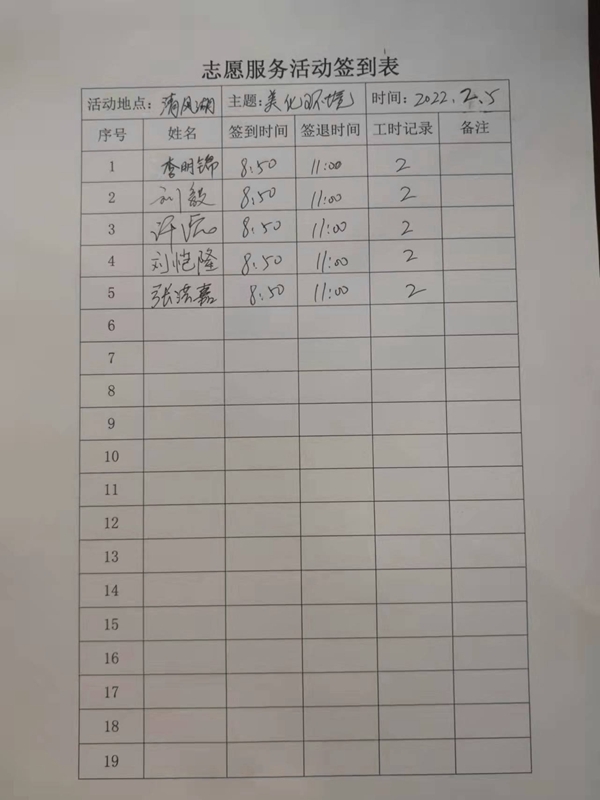 志愿服务活动签到表
活动地点：清风湖 主题：美化环境 时间：2022.2.5
序号 姓名 签到时间 签退时间 工时记录 备注
1 李明锦 8:50 11:00 2
2 刘毅 8:50 11:00 2
3 许 8:50 11:00 2
4 刘恺隆 8:50 11:00 2
5 张洪嘉 8:50 11:00 2
6
7
8
9
10
11
12
13
14
15
16
17
18
19